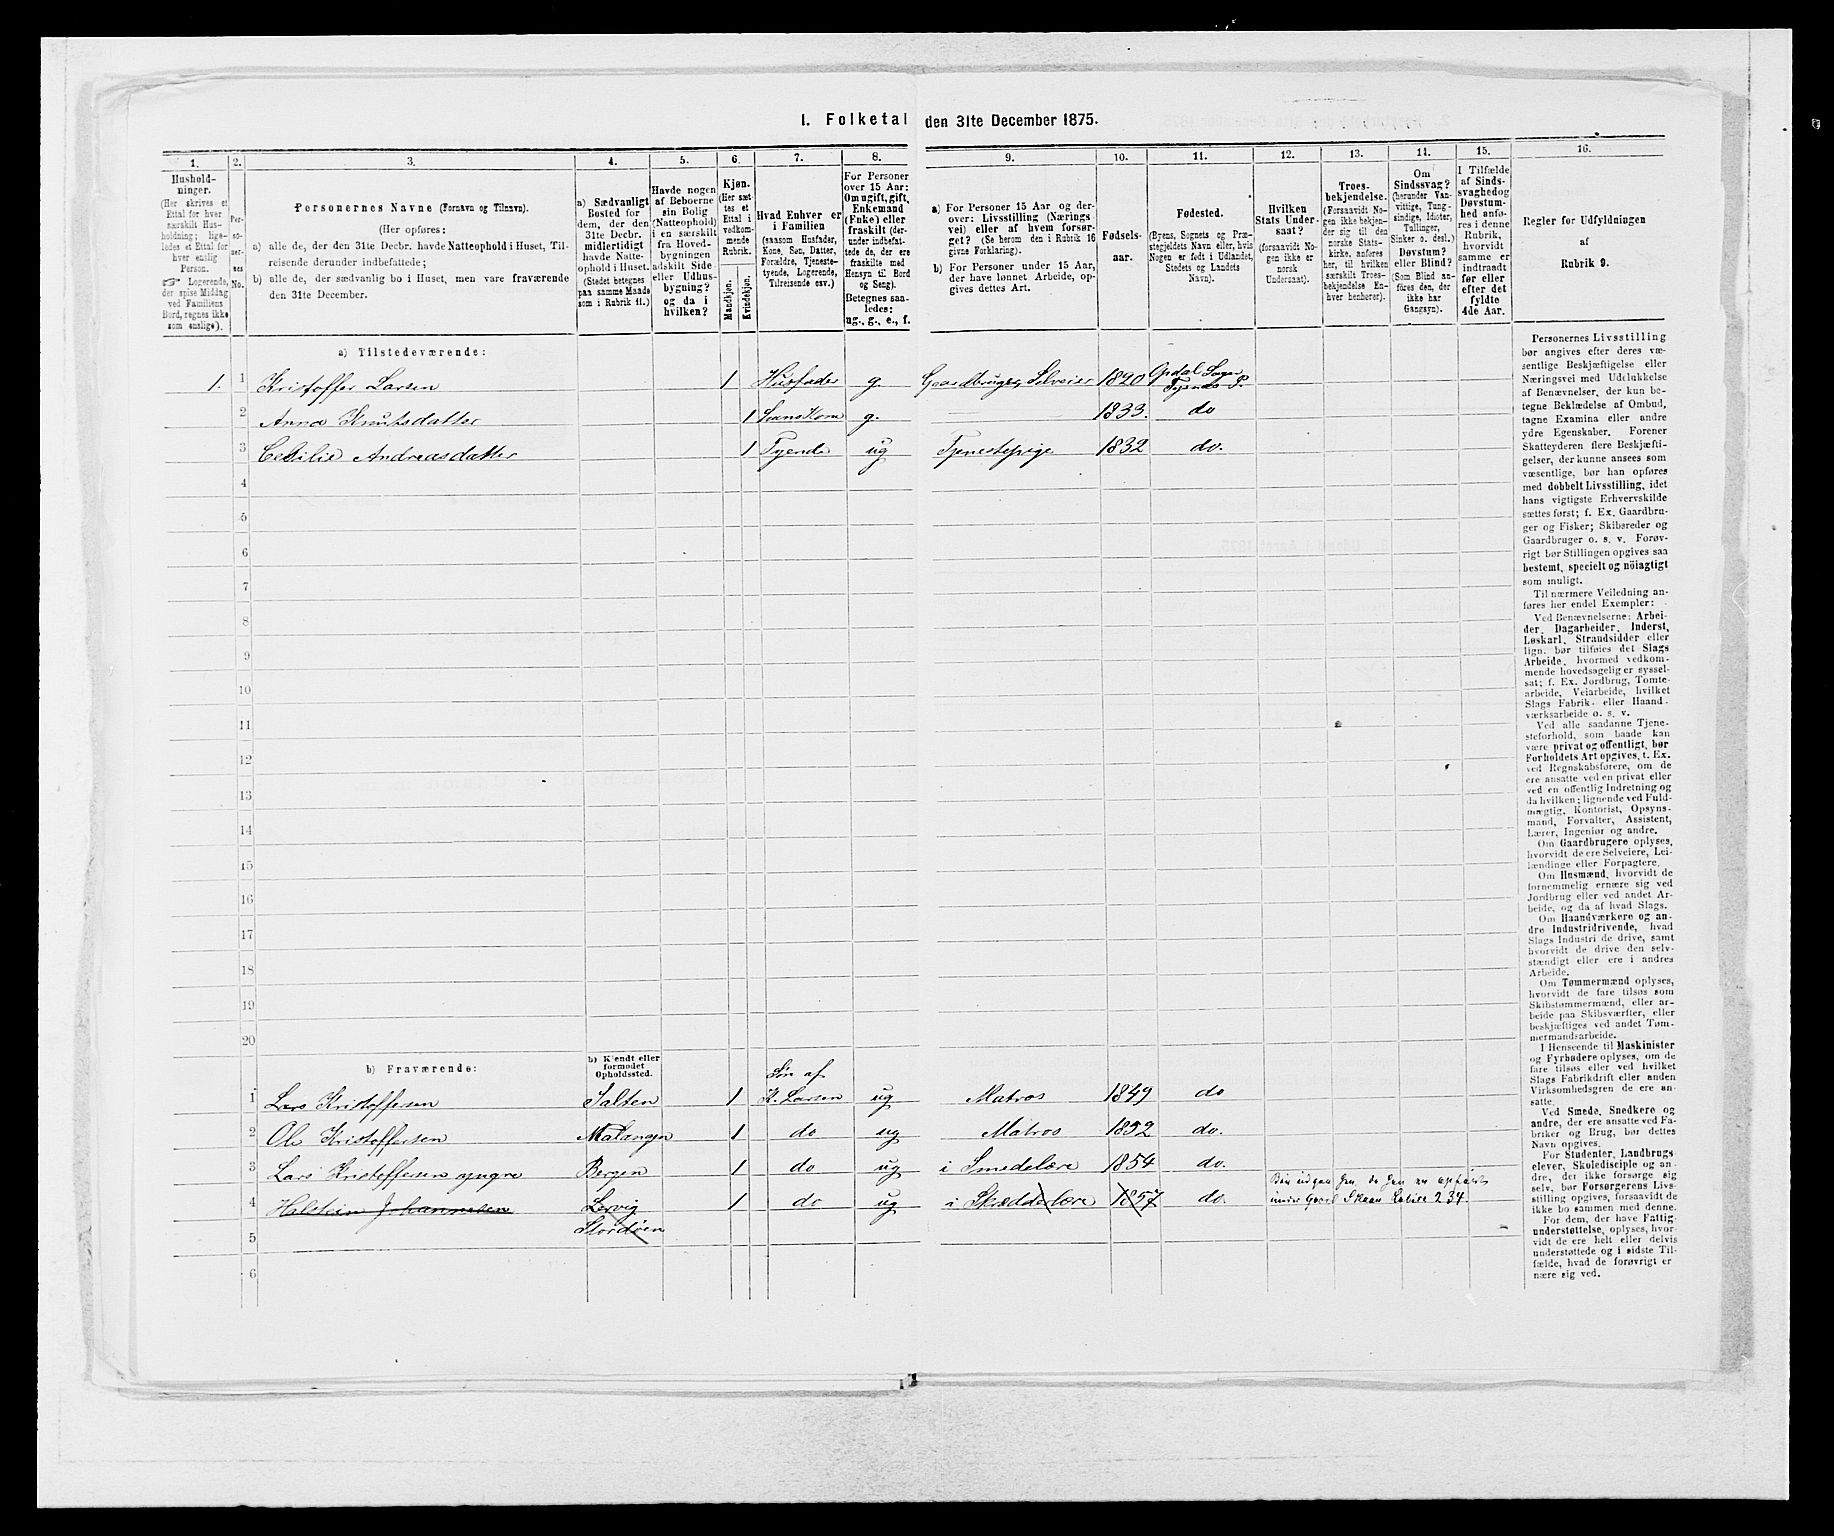 1. Folketal den 31te December 1875.
1. 2. 3. 4. 5. 6. 7. 8. 9. 10. 11. 12. 13. 14. 15. 16.
Hushold-
ninger.
(Her skrives et
Ettal for hver
særskilt Hus-
holdning; lige-
ledes et Ettal for
hver enslig
Person.
Logerende,
der spise Middag
ved Familiens
Bord, regnes ikke
som enslige).
Per-
so-
ner-
nes
No.
Personernes Navne (Fornavn og Tilnavn).
(Her opføres:
a) alle de, der den 31te Decbr. havde Natteophold i Huset, Til-
reisende derunder indbefattede;
b) alle de, der sædvanlig bo i Huset, men vare fraværende
den 31te December.
a) Sædvanligt
Bosted for
dem, der den
31te Decbr.
midlertidigt
havde Natte-
ophold i Huset.
(Stedet betegnes
paa samme Maade
som i Rubrik 11.)
Havde nogen
af Beboerne
sin Bolig
(Natteophold)
i en særskilt
fra Hoved-
bygningen
adskilt Side
eller Udhus-
bygning?
og da i
hvilken?
Kjøn.
(Her sæt-
tes et
Ettal i
vedkom-
mende
Rubrik.
Mandkjøn.
Kvindekjøn.
Hvad Enhver er
i Familien
(saasom Husfader,
Kone, Søn, Datter,
Forældre, Tjeneste-
tyende, Logerende,
Tilreisende osv.)
For Personer
over 15 Aar:
Om ugift, gift,
Enkemand
(Enke) eller
fraskilt (der-
under indbefat-
tede de, der ere
fraskilte med
Hensyn til Bord
og Seng).
Betegnes saa-
ledes:
ug., g., e., f.
a) For Personer 15 Aar og der-
over: Livsstilling (Nærings
vei) eller af hvem forsør-
get? (Se herom den i Rubrik 16
givne Forklaring).
b) For Personer under 15 Aar,
der have lønnet Arbeide, op-
gives dettes Art.
Fødsels-
aar.
Fødested.
(Byens, Sognets og Præ-
stegjeldets Navn eller, hvis
Nogen er født i Udlandet,
Stedets og Landets
Navn).
Hvilken
Stats Under-
saat?
(forsaavidt No-
gen ikke er
norsk
Undersaat).
Troes-
bekjendelse.
(Forsaavidt No-
gen ikke bekjen-
der sig til den
norske Stats-
kirke, anføres
her, til hvilken
særskilt Troes-
bekjendelse En-
hver henhører).
Om
Sindssvag?
(herunder Van-
vittige, Tung-
sindige, Idioter,
Tullinger,
Sinker o. desl.)
Døvstum?
eller Blind?
(Som Blind an-
føres den, der
ikke har
Gangsyn).
I Tilfælde
af Sinds-
svaghed og
Døvstum-
hed anfø-
res i denne
Rubrik,
hvorvidt
samme er
indtraadt
før eller
efter det
fyldte
4de Aar.
Regler for Udfyldningen
af
Rubrik 9.
a) Tilstedeværende:
1. 1 Kristoffer Larsen 1 Husfader g. Gaardbruger Selveier 1820 Opdal Sogn Tysnes P.
2 Anna Knutsdatter 1 Hans Kone g. 1833. do
3 Cecilie Andreasdatter 1 Tyende ug Tjenestepige 1832 do.
4
5
6
7
8
9
10
11
12
13
14
15
16
17
18
19
20
b) Fraværende:
b) Kjendt eller
formodet
Opholdssted.
Søn af
1 Lars Kristoffersen Salten 1 K. Larsen ug Matros 1849 do
2 Ole Kristoffersen Malangen 1 do ug Matros 1852 do.
3 Lars Kristoffersen yngre Bergen 1 do ug i Smedelære 1854 do.
4 Halstein Johannesen Lervig 1 do ug i Skrædderlære 1857 do.
Stordøen
5
6
Personernes Livsstilling
bør angives efter deres væ-
sentlige Beskjæftigelse eller
Næringsvei med Udelukkelse
af Benævnelser, der kun be-
tegne Beklædelse af Ombud,
tagne Examina eller andre
ydre Egenskaber. Forener
Skatteyderen flere Beskjæfti-
gelser, der kunne ansees som
væsentlige, bør han opføres
med dobbelt Livsstilling, idet
hans vigtigste Erhvervskilde
sættes først; f. Ex. Gaardbru-
ger og Fisker; Skibsreder og
Gaardbruger o. s. v. Forøv-
rigt bør Stillingen opgives saa
bestemt, specielt og nöiagtigt
som muligt.
Til nærmere Veiledning an-
føres her endel Exempler:
Ved Benævnelserne: Arbei-
der, Dagarbeider, Inderst,
Løskarl, Strandsidder eller
lign. bør tilføies det Slags
Arbeide, hvormed vedkom-
mende hovedsagelig er syssel-
sat; f. Ex. Jordbrug, Tomte-
arbeide, Veiarbeide, hvilket
Slags Fabrik- eller Haand-
værksarbeide o. s. v.
Ved alle saadanne Tjene-
steforhold, som baade kan
være privat og offentligt, bør
Forholdets Art opgives, t. Ex.
ved Regnskabsførere, om de
ere ansatte ved en privat eller
ved en offentlig Indretning og
da hvilken; lignende ved Fuld-
mægtig, Kontorist, Opsyns-
mand, Forvalter, Assistent,
Lærer, Ingeniør og andre.
Om Gaardbrugere oplyses,
hvorvidt de ere Selveiere, Lei-
lændinge eller Forpagtere.
Om Husmænd, hvorvidt de
fornemmelig ernære sig ved
Jordbrug eller ved andet Ar-
beide, og da af hvad Slags.
Om Haandværkere og an-
dre Industridrivende, hvad
Slags Industri de drive, samt
hvorvidt de drive den selv-
stændigt eller ere i andres
Arbeide.
Om Tømmermænd oplyses,
hvorvidt de fare tilsøs som
Skibstømmermænd, eller ar-
beide paa Skibsværfter, eller
beskjæftiges ved andet Tøm-
mermandsarbeide.
I Henseende til Maskinister
og Fyrbødere oplyses, om de
fare tilsøs eller ved hvilket
Slags Fabrikdrift eller anden
Virksomhedsgren de ere an-
satte.
Ved Smede, Snedkere og
andre, der ere ansatte ved Fa-
briker og Brug, bør dettes
Navn opgives.
For Studenter, Landbrugs-
elever, Skoledisciple og an-
dre, der ikke forsørge sig
selv, bør Forsørgerens Livs-
stilling opgives, forsaavidt de
ikke bo sammen med denne.
For dem, der have Fattig-
understøttelse, oplyses, hvor-
vidt de ere helt eller delvis
understøttede og i sidste Til-
fælde, hvad de forøvrigt er
nære sig ved.